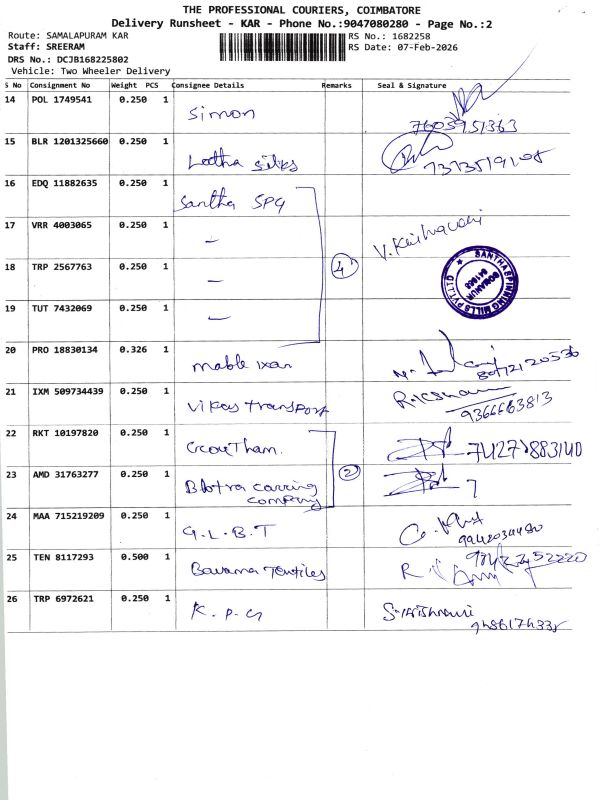 THE PROFESSIONAL COURIERS, COIMBATORE
Delivery Runsheet - KAR - Phone No.:9047080280 - Page No.:2
Route: SAMALAPURAM KAR
RS No.: 1682258
Staff: SREERAM
RS Date: 07-Feb-2026
DRS No.: DCJB168225802
Vehicle: Two Wheeler Delivery
S No Consignment No Weight PCS Consignee Details Remarks Seal & Signature
14 POL 1749541 0.250 1 Simon 7603951363
15 BLR 1201325660 0.250 1 Silks
16 EDQ 11882635 0.250 1 Santha SPG
17 VRR 4003065 0.250 1 - V.
18 TRP 2567763 0.250 1 - 4
SANTHA SPINNING MILLS PVT.LTD
SOMANUR
19 TUT 7432069 0.250 1 -
20 PRO 18830134 0.326 1 mable 8072120536
21 IXM 509734439 0.250 1 Vikas transport 9366663813
22 RKT 10197820 0.250 1
23 AMD 31763277 0.250 1 carring 2
company
24 MAA 715219209 0.250 1 G.L.B.T
25 TEN 8117293 0.500 1 Bavana
26 TRP 6972621 0.250 1 K.P.G